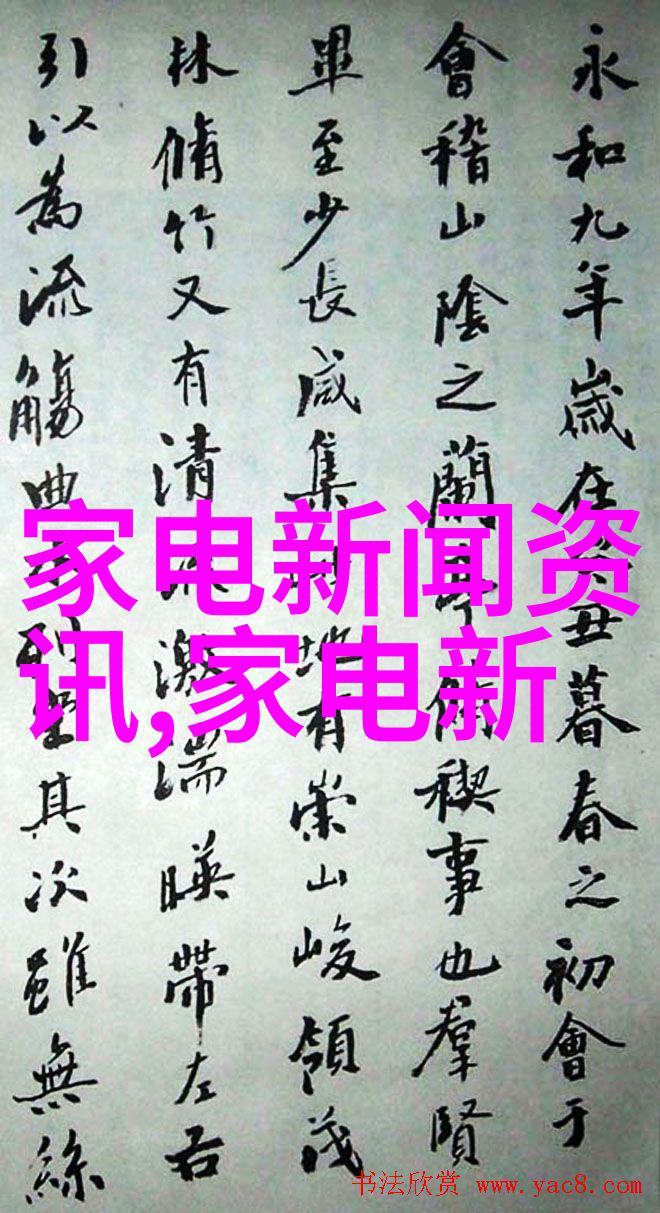 永和九年歲在癸丑暮春之初會于
會稽山陰之蘭亭脩稧事也羣賢
畢至少長咸集此地有崇山峻領茂
林脩竹又有清流激湍暎帶左右
引以為流觴曲水列坐其次雖無絲
家电新闻资
讯,家电新
书法欣赏 www.yac8.com